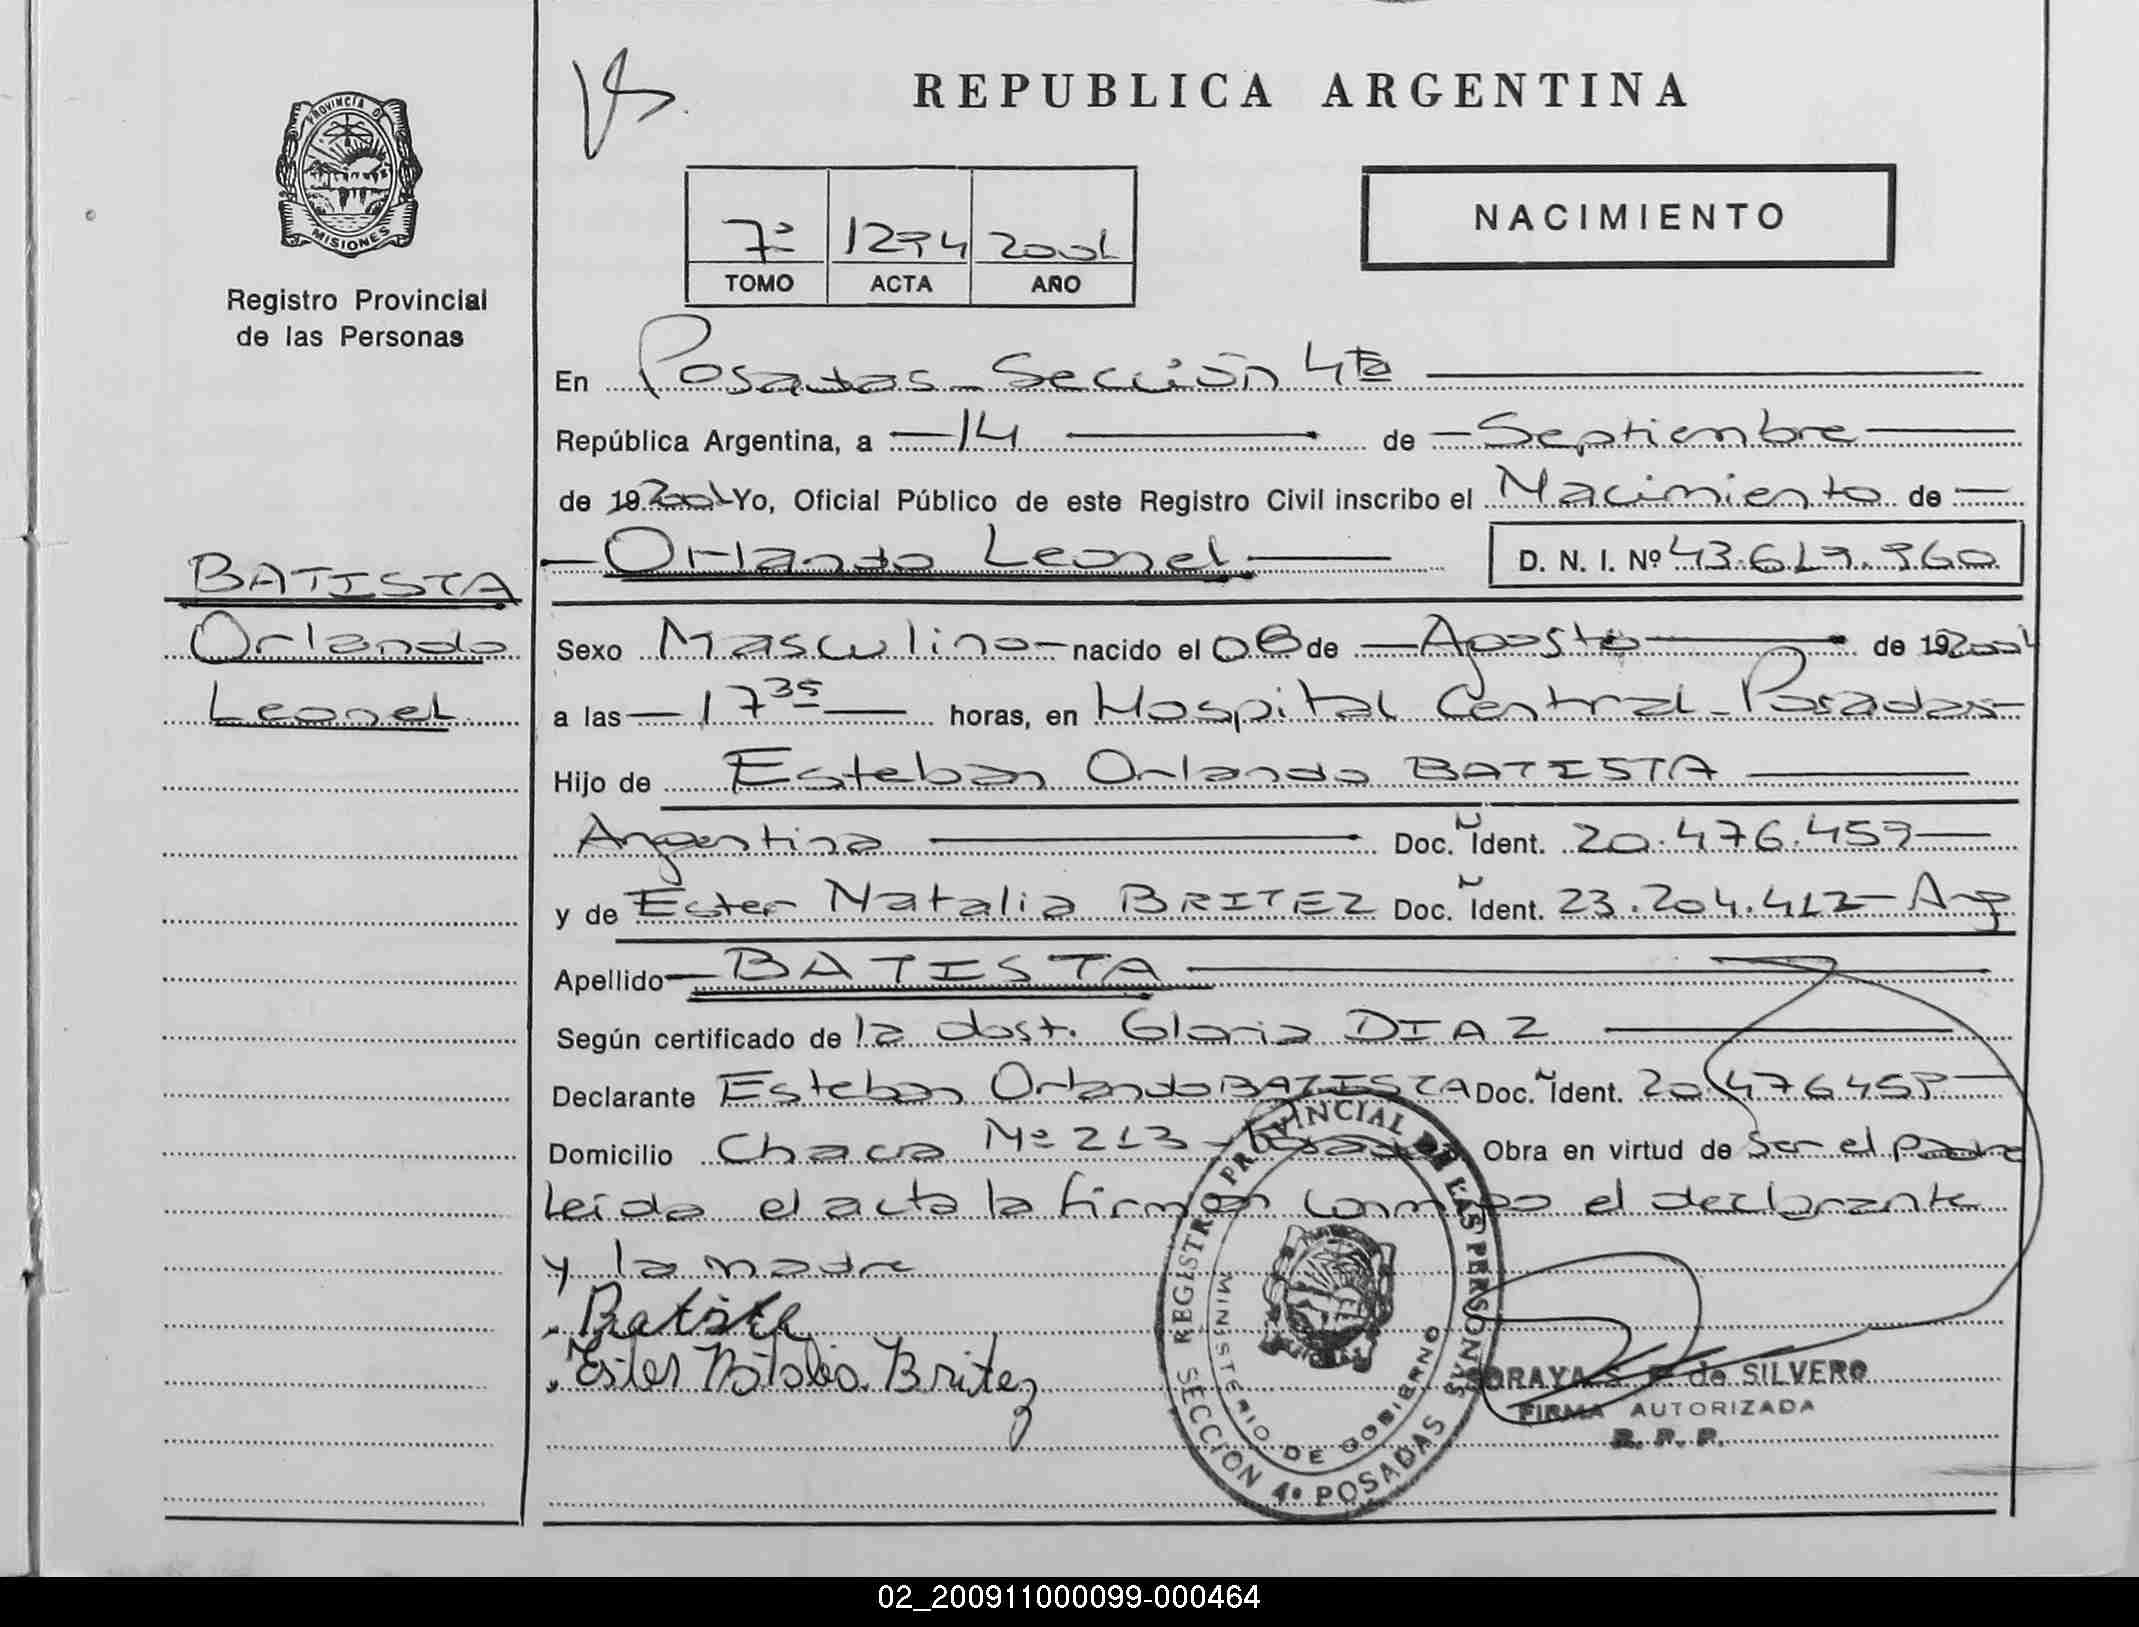 REPUBLICA ARGENTINA
PROVINCIA DE
MISIONES
Registro Provincial
de las Personas
7º 1294 2001
TOMO ACTA AÑO
NACIMIENTO
En Posadas - Sección 4ta
República Argentina, a - 14 - de - Septiembre
de 19 2001 Yo, Oficial Público de este Registro Civil inscribo el Nacimiento de -
- Orlando Leonel - D. N. I. Nº 43.619.960
BATISTA
Orlando
Leonel
Sexo Masculino - nacido el 08 de - Agosto - de 19 2001
a las - 17 35 - horas, en Hospital Central - Posadas -
Hijo de Esteban Orlando BATISTA
Argentina Doc. Ident. 20.476.459 -
y de Ester Natalia BRITEZ Doc. Ident. 23.204.412 - Arg
Apellido - BATISTA
Según certificado de la obst. Gloria DIAZ
Declarante Esteban Orlando BATISTA Doc. Ident. 20.476459 -
Domicilio Chaca Nº 213 - Posadas Obra en virtud de ser el padre
Leida el acta la firman conmigo el declarante
y la madre
Batista
Ester Natalia Britez
REGISTRO PROVINCIAL DE LAS PERSONAS
MINISTERIO DE GOBIERNO
SECCION 4º POSADAS
SORAYA S. de SILVERO
FIRMA AUTORIZADA
R. P. P.
02_200911000099-000464